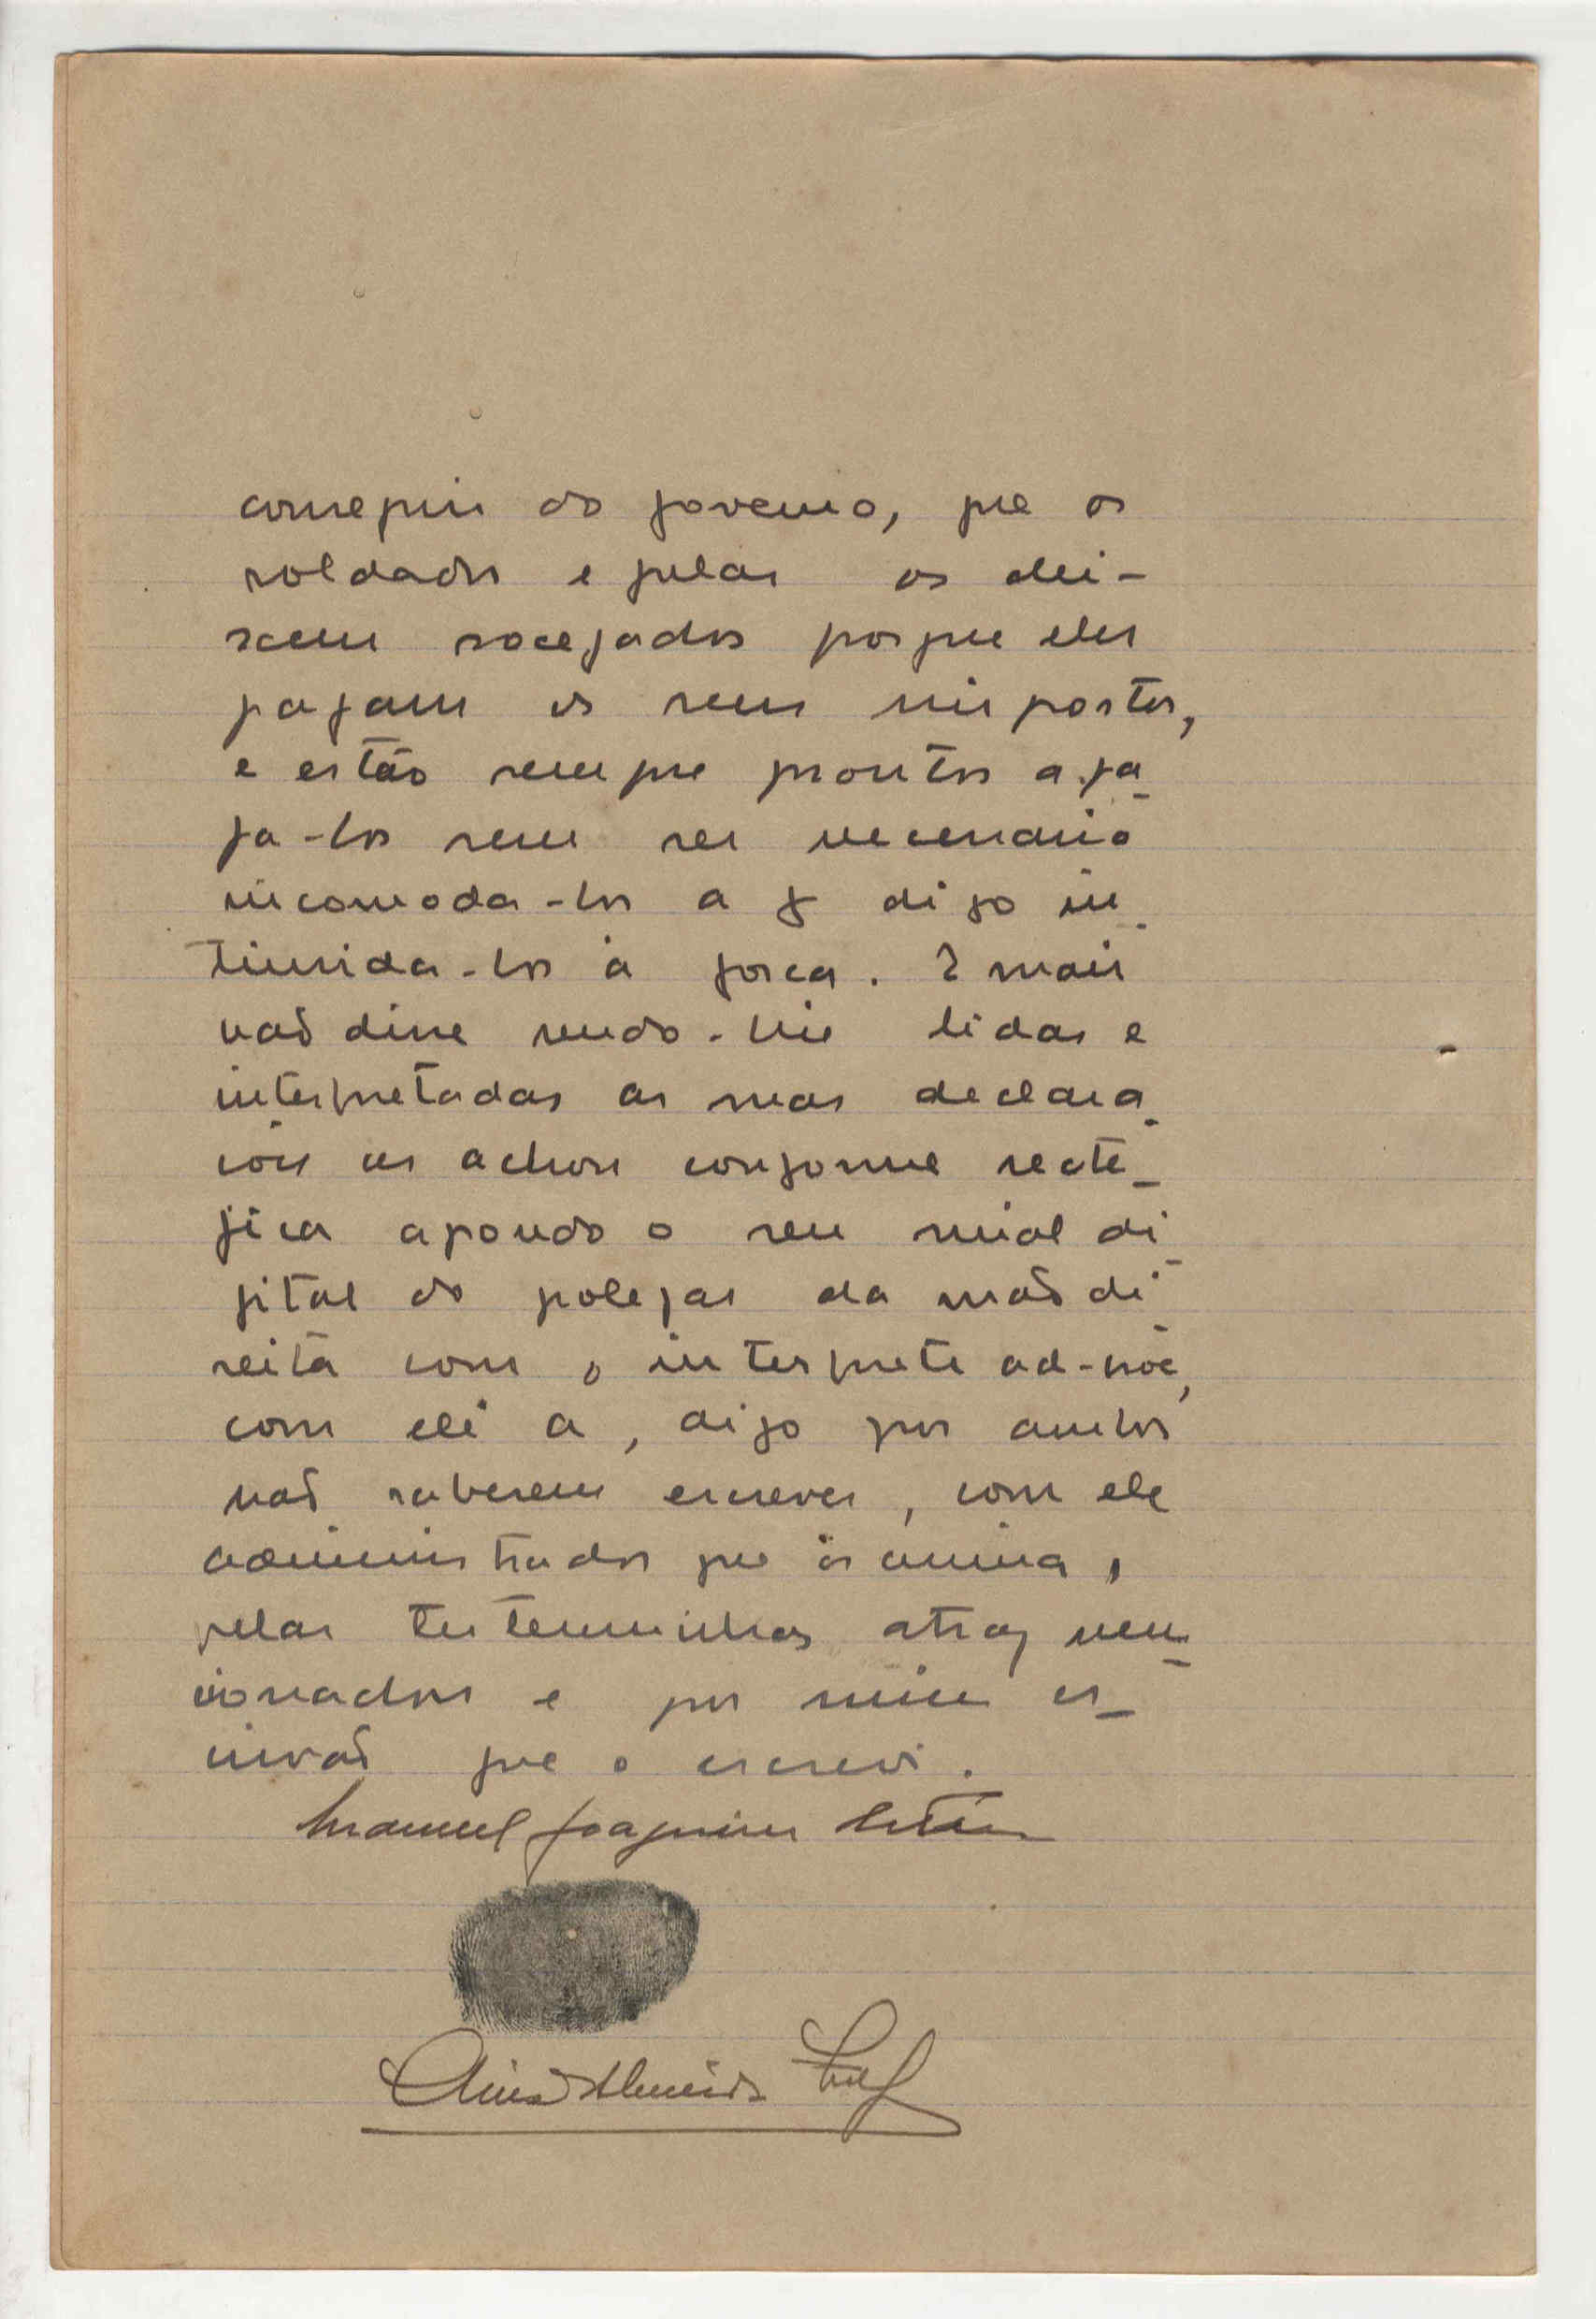 conseguir do governo, que os
soldados e fulas os dei-
xem socegados porque eles
pagam os seus impostos,
e estão sempre prontos a pa
ga-los sem ser necenario
incomoda-los a f digo in
timida-los à forca. E mais
não disse sendo-lhe lidas e
interpretadas as suas declara
cões as achou conforme recte
fica apondo o seu sinal di
gital do polegar da mão di
reita com o interprete ad-hoc,
com ele a, digo por ambos
não saberem escrever, com ele
administrador que assina,
pelas testemunhas atraz men
cionados e por mim es
crivão que o escrevi.
Manuel Joaquim
Almeida